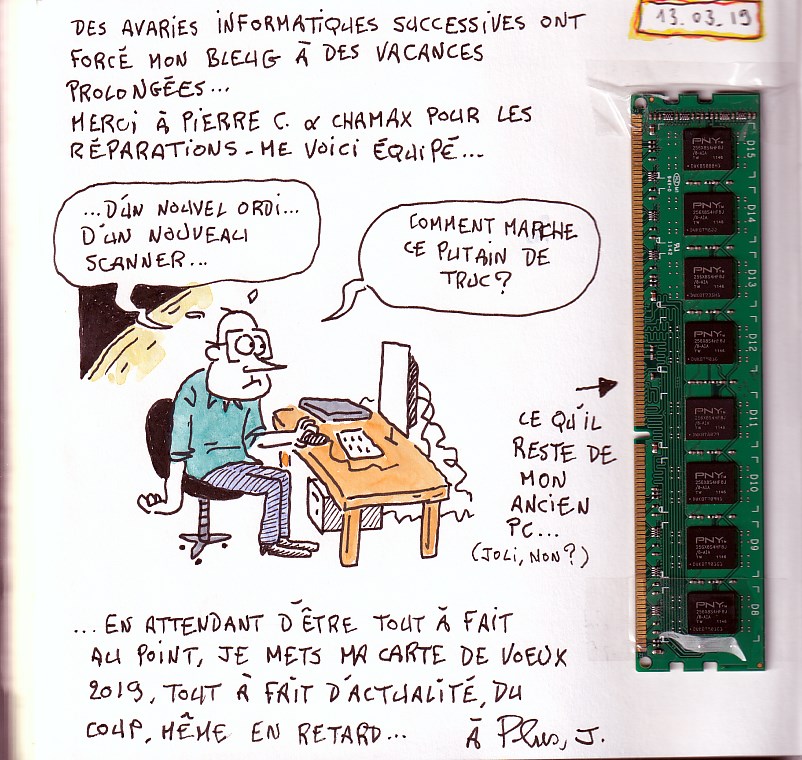 13.03.19
DES AVARIES INFORMATIQUES SUCCESSIVES ONT
FORCÉ MON BLEUG À DES VACANCES
PROLONGÉES...
MERCI À PIERRE C. & CHAMAX POUR LES
RÉPARATIONS - ME VOICI ÉQUIPÉ...
...D'UN NOUVEL ORDI...
D'UN NOUVEAU
SCANNER...
COMMENT MARCHE
CE PUTAIN DE
TRUC?
CE QU'IL
RESTE DE
MON
ANCIEN
PC...
(JOLI, NON?)
PNY
D15
PNY
D14
PNY
D13
PNY
D12
PNY
D11
PNY
D10
PNY
D9
PNY
D8
...EN ATTENDANT D'ÊTRE TOUT À FAIT
AU POINT, JE METS MA CARTE DE VOEUX
2019, TOUT À FAIT D'ACTUALITÉ, DU
COUP, MÊME EN RETARD...
À Plus, J.